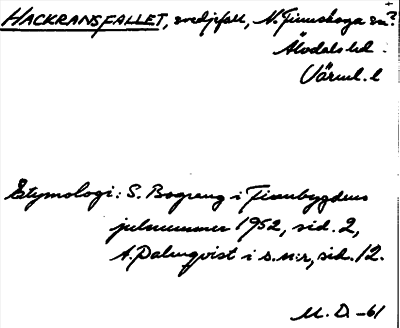 HACKRANSFALLET, svedjefall, N. Finnskoga sn?
Älvdals hd.
Värml. l
Etymologi: S. Bograng i Finnbygdens
julnummer 1952, sid. 2,
A. Palmqvist i s. nr, sid. 12.
M. D. -61